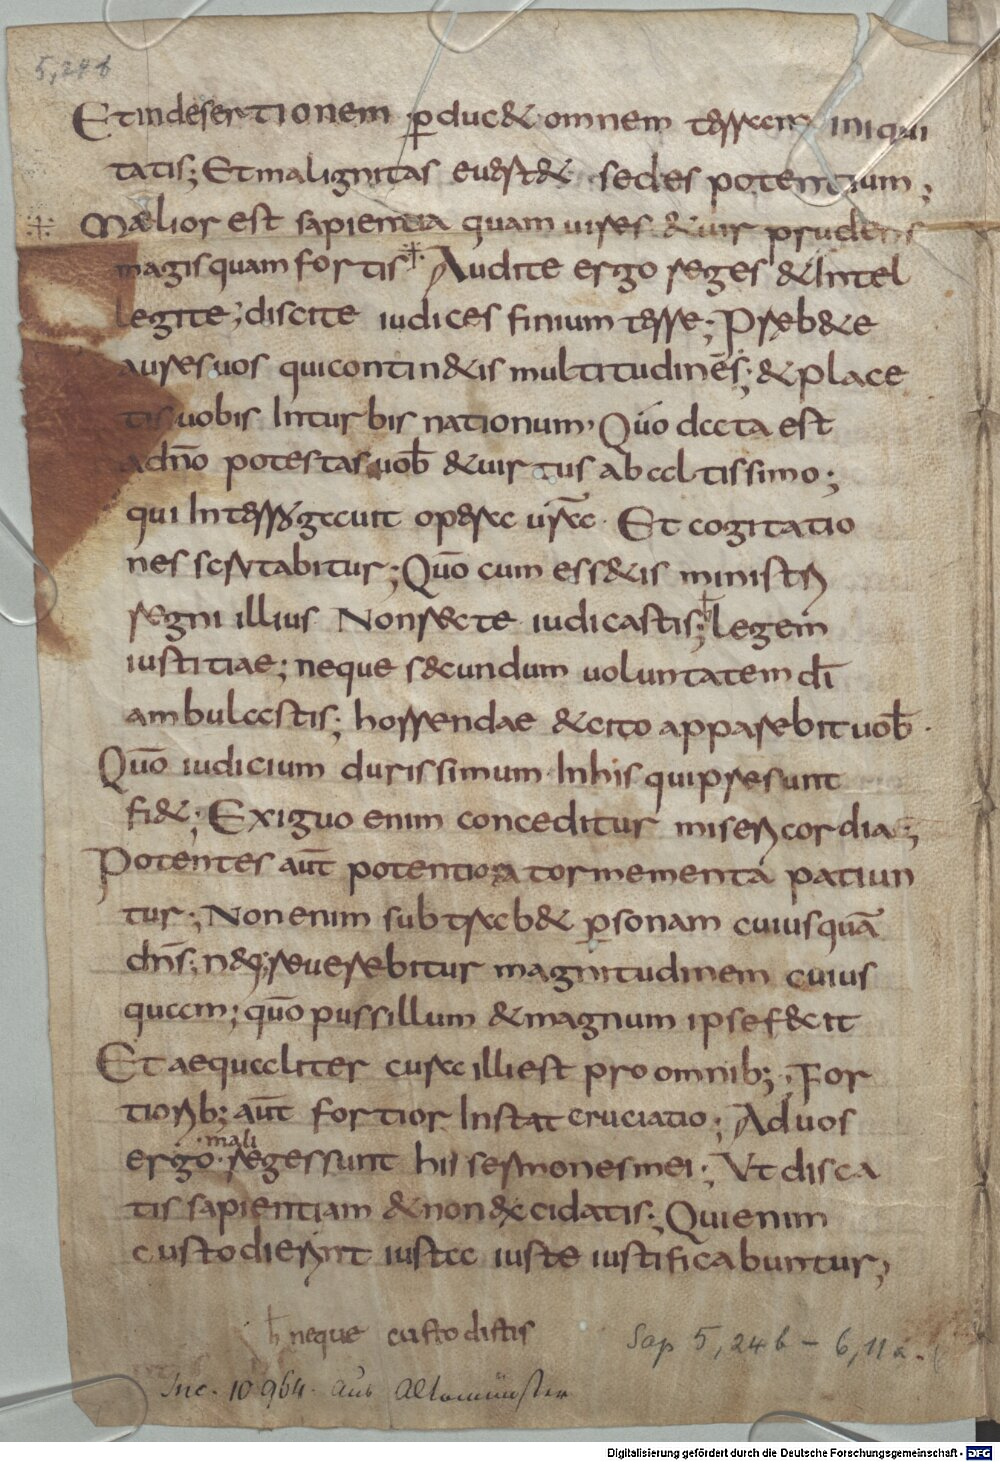 5,24b
Et in desertionem ꝑduc& omnem terram iniqui
tatis; Et malignitas euert& sedes potentium;
Melior est sapientia quam uires & uir prudens
magis quam fortis Audite ergo reges & intel
legite; discite iudices finium terre; Preb&e
aures uos qui contin&is multitudinēs; & place
tis uobis In turbis nationum, Quō data est
adn̄o potestas uob̄ & uirtus ab altissimo;
qui Interrogauit opera ur̄a Et cogitatio
nes scrutabitur; Quō cum ess&is ministri
regni illius Non recte iudicastis; legem
iustitiae; neque secundum uoluntatem dī
ambulastis; horrendae & cito apparebit uob̄.
Quō iudicium durissimum In his qui presunt
fi&; Exiguo enim conceditur misericordia;
Potentes aut̄ potentiora tormementa patiun
tur; Non enim subtrab& ꝑsonam cuiusquā
dn̄s; neq; reuerebitur magnitudinem cuius
quam; quō pussillum & magnum ipse fecit
Et aequaliter cura illi est pro omnib; For
tiorib; aut̄ fortior Instat cruciatio; Ad uos
mali
ergo reges sunt hii sermones mei; Vt disca
tis sapientiam & non excidatis; Qui enim
custodierunt iusta iuste iustificabuntur;
h̄ neque custodistis
Sap 5,24b – 6,11a.
Inc. 10 964. aus Altomünster
Digitalisierung gefördert durch die Deutsche Forschungsgemeinschaft - DFG